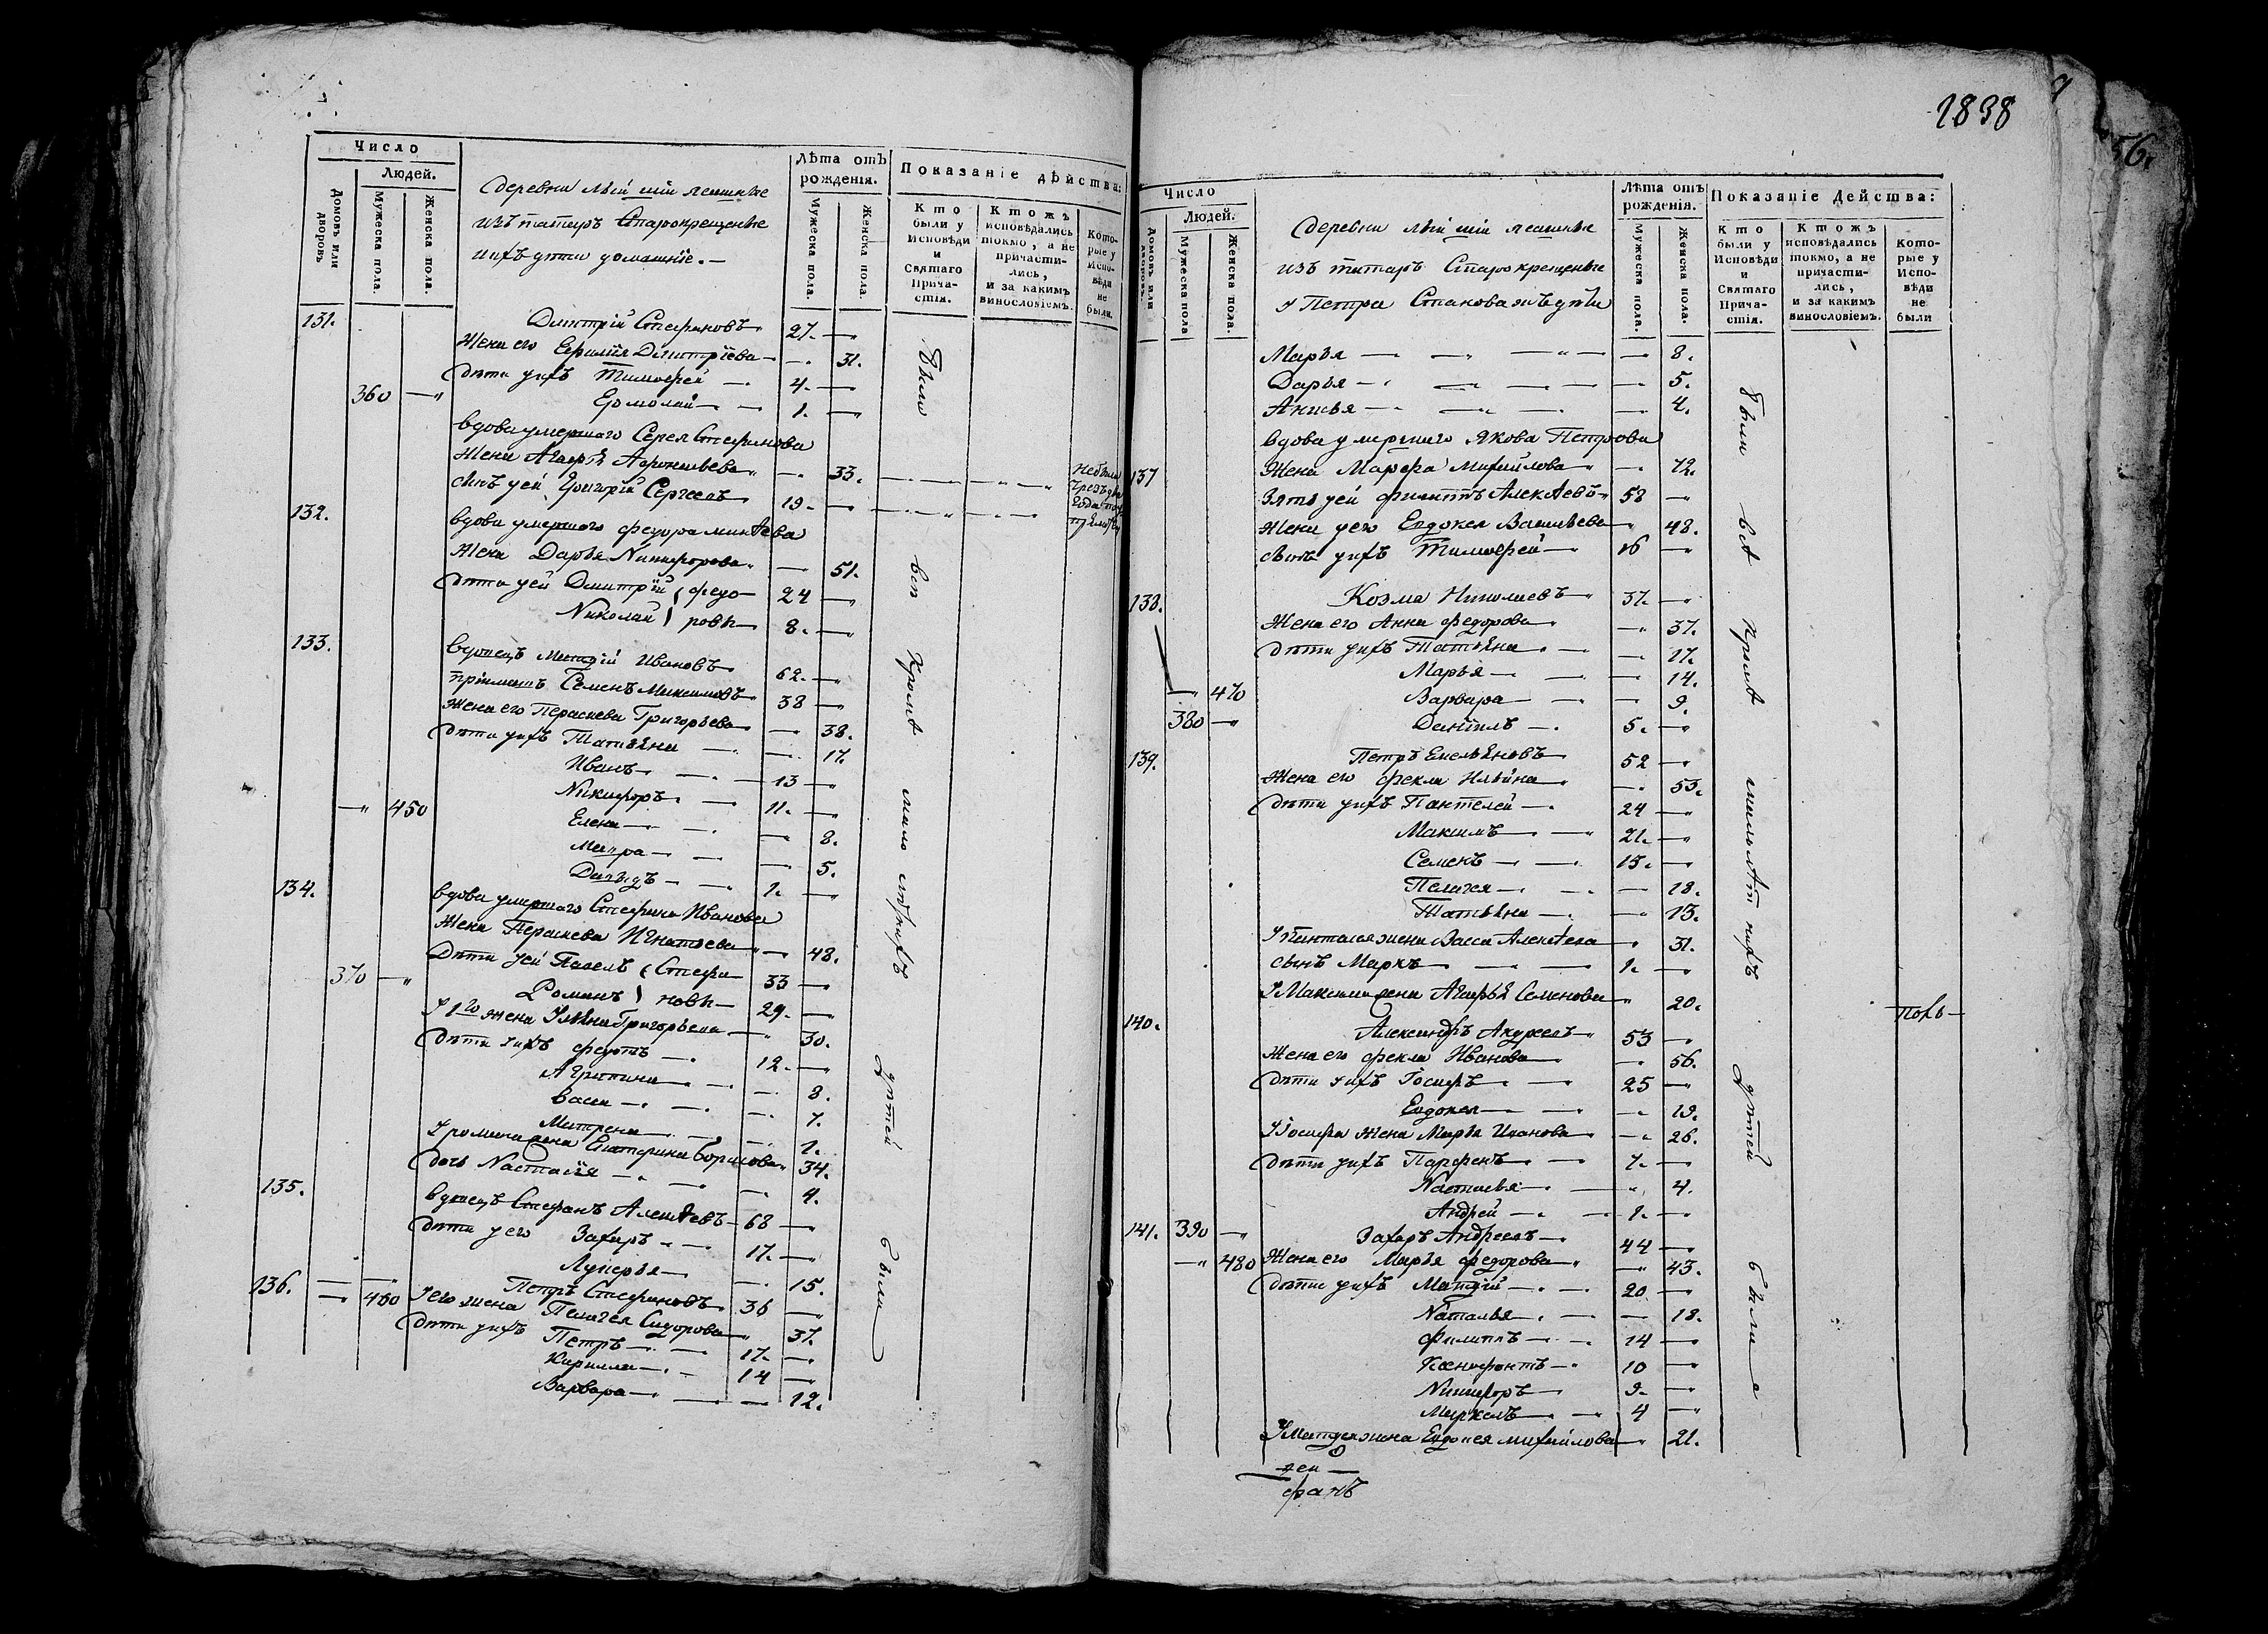 Число
Людей.
Домовъ или дворовъ
Мужеска пола.
Женска пола.
Деревни
изъ татаръ Старокрещеные
ихъ дѣти домашніе.
Лѣта отъ рожденія.
Мужеска пола.
Женска пола.
Показаніе дѣйства:
Кто были у Исповѣди и Святаго Прича-стія.
Ктожъ исповѣдались токмо, а не причасти-лись, и за какимъ винословіемъ.
Кото-рые у Испо-вѣди не были.
131. Дмитрій Стефановъ 27.
Жена его Дмитріева 31.
дѣти ихъ Тимофей 4.
360 Ермолай 1.
вдова умершаго Сергея Стефанова
Жена Агафья Афонасьева 33.
сынъ уей Григорій Сергеевъ 19.
132. вдова умершаго федора Минѣева
Жена Дарья Никифорова 51.
дѣти уей Дмитрій федо- 24
Николай ровы 8.
133. вдовецъ Матфій Ивановъ 62.
пріиматъ Семенъ Максимовъ 38
Жена его Параскева Григорьева 38.
дѣти уихъ Татьяна 17.
Иванъ 13
Никифоръ 11.
450 Елена 8.
Мавра 5.
Давыдъ 1.
134. вдова умершаго Стефана Иванова
Жена Параскева Игнатьева 48.
Дѣти уей Павелъ Стефа- 33
370 Романъ новы 29.
У 1го жена Ульяна Григорьева 30.
дѣти уихъ федотъ 12.
Агрипина 8.
васса 7.
Матрена 1.
У романа жена Екатерина борисова 34.
дочь Настасія 4.
135. вдовецъ Стефанъ Алексѣевъ 68
дѣти у его Захаръ 17.
Лукерья 15.
136. Петръ Стефановъ 36
460 У его жена Пелагея Сидорова 37.
дѣти уихъ Петръ 17.
Кирилла 14
Варвара 12.
были
всѣ
Кромѣ
мало
дѣтей
были
1838
56.
Число
Людей.
Домовъ или дворовъ.
Мужеска пола
Женска пола.
Деревни
изъ татаръ Старокрещеные
у Петра Стефановажъ дѣти
Лѣта отъ рожденія.
Мужеска пола.
Женска пола.
Показаніе Дейсшва:
Кто были у Исповѣди и Святаго Прича-стія.
Ктожъ исповѣдались токмо, а не причасти-лись, и за какимъ винословіемъ.
Кото-рые у Испо-вѣди не были
Марья 8.
Дарья 5.
Анисья 4.
вдова умершаго Якова Петрова
137 Жена Марфа михайлова 72.
Зять уей филиппъ Алексѣевъ 58
Жена уего Евдокея Васильева 48.
сынъ уихъ Тимофей 16
138. Козма Николаевъ 37.
Жена его Анна федорова 37.
дѣти уихъ Татьяна 17.
Марья 14.
470 Варвара 9.
380 Даніилъ 5.
139. Петръ Емельяновъ 52
Жена его фекла Ильина 53.
дѣти уихъ Пантелей 24
Максимъ 21.
Семенъ 15.
Пелагея 18.
Татьяна 13.
У Пантелея жена Васса Алексѣева 31.
сынъ Маркъ 1.
У Максима жена Агафья Семенова 20.
140. Александръ Андреевъ 53
Жена его фекла Иванова 56.
дѣти уихъ Іосифъ 25
Евдокея 19.
У Іосифа жена Марья Иванова 26.
дѣти уихъ Парфенъ 7.
Наталья 4.
Андрей 1.
141. 390 Захаръ Андреевъ 44
480 Жена его Марья федорова 43.
дѣти уихъ Матфій 20
Наталья 18.
филиппъ 14
Ксенофонтъ 10
Никифоръ 9.
Маркелъ 4
У Матфея жена Евдокея михайлова 21.
фанъ
были
всѣ
Кромѣ
дѣтей
были